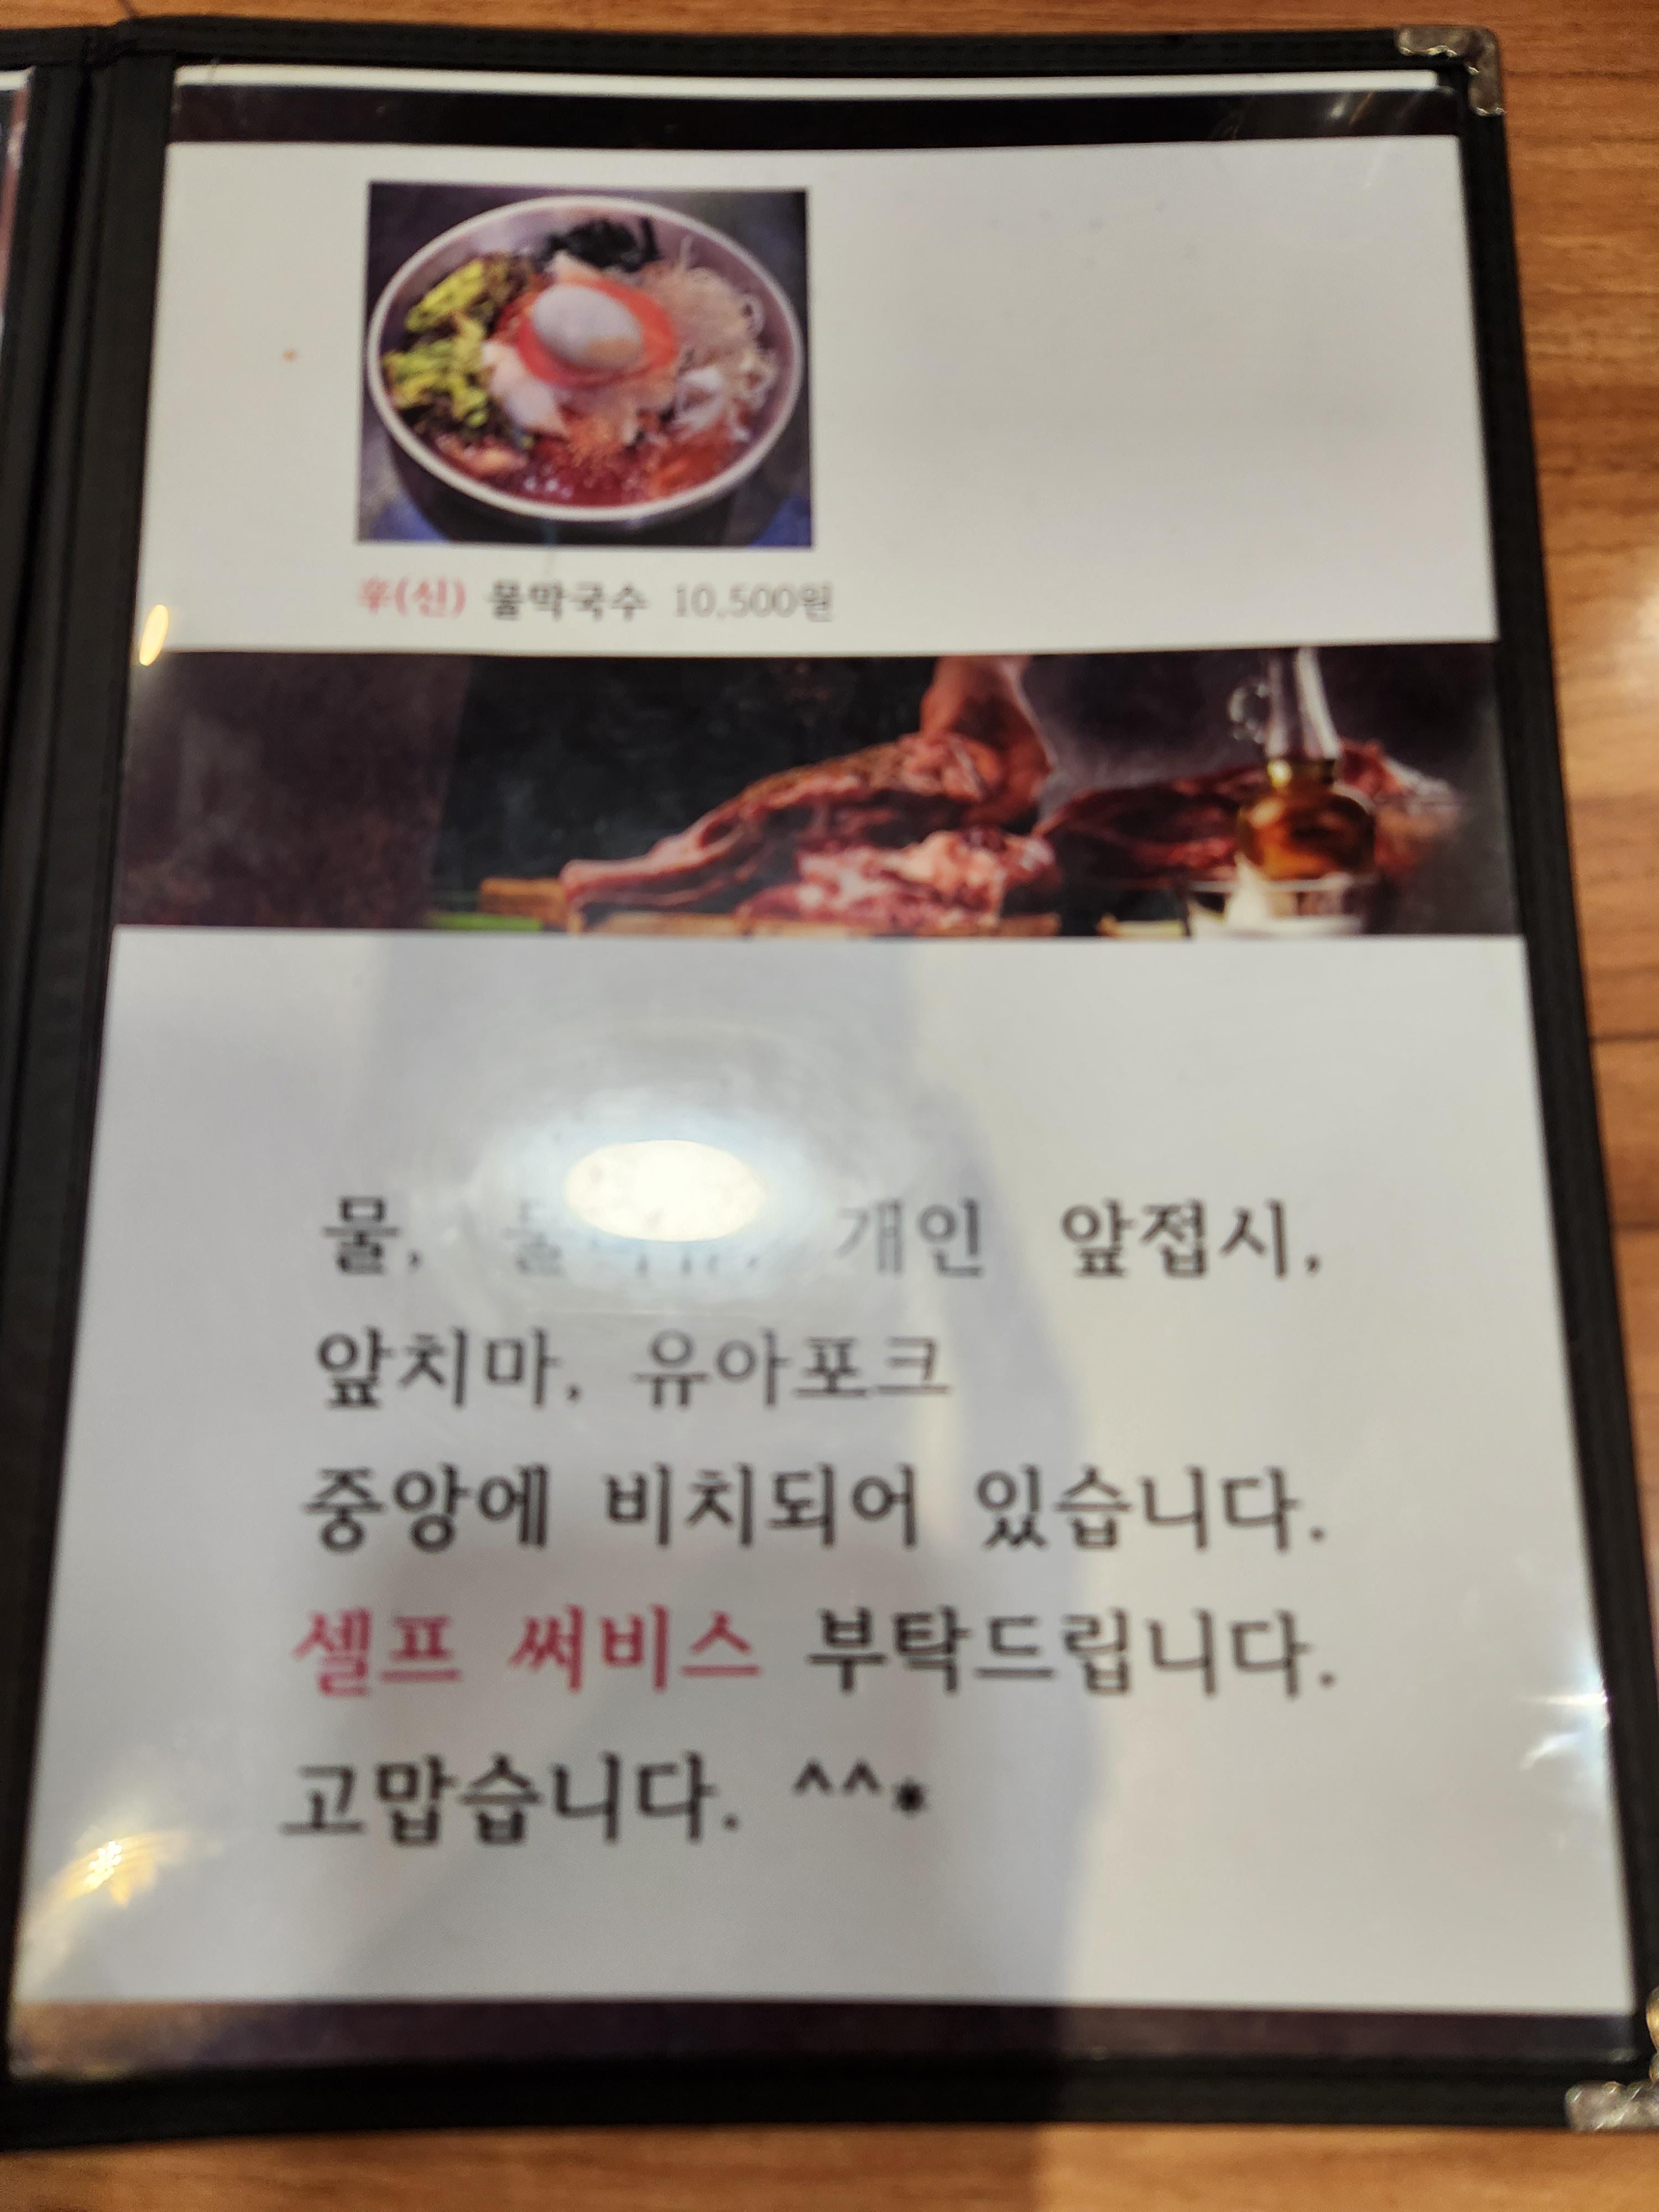 후(신) 물막국수 10,500원
물, 개인 앞접시,
앞치마, 유아포크
중앙에 비치되어 있습니다.
셀프 써비스 부탁드립니다.
고맙습니다. ^^*